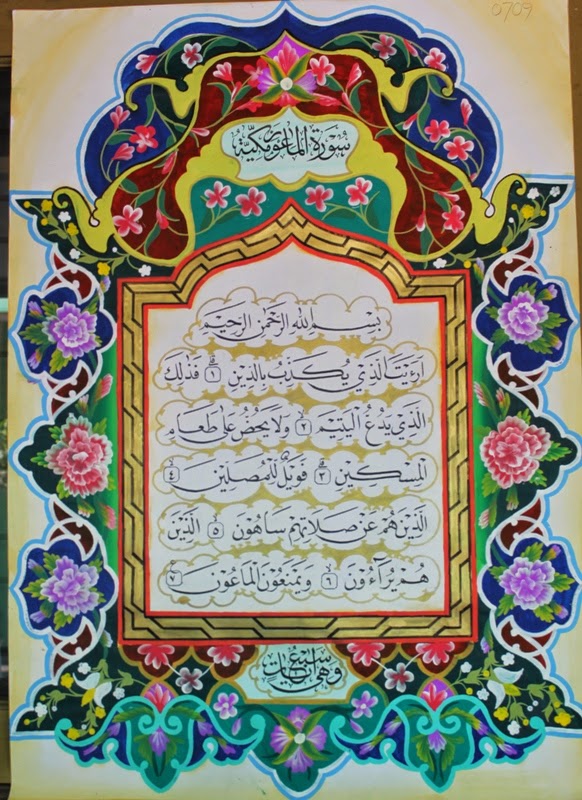 0709
سُورَةُ الْمَاعُوْنِ مَكِّيَّة
بِسْمِ اللهِ الرَّحْمٰنِ الرَّحِيْمِ
اَرَءَيْتَ الَّذِيْ يُكَذِّبُ بِالدِّيْنِ ۝١ فَذٰلِكَ
الَّذِيْ يَدُعُّ الْيَتِيْمَ ۝٢ وَلَا يَحُضُّ عَلٰى طَعَامِ
الْمِسْكِيْنِ ۝٣ فَوَيْلٌ لِّلْمُصَلِّيْنَ ۝٤
الَّذِيْنَ هُمْ عَنْ صَلَاتِهِمْ سَاهُوْنَ ۝٥ الَّذِيْنَ
هُمْ يُرَآءُوْنَ ۝٦ وَيَمْنَعُوْنَ الْمَاعُوْنَ ۝٧
وَهِيَ سَبْعُ آيَاتٍ